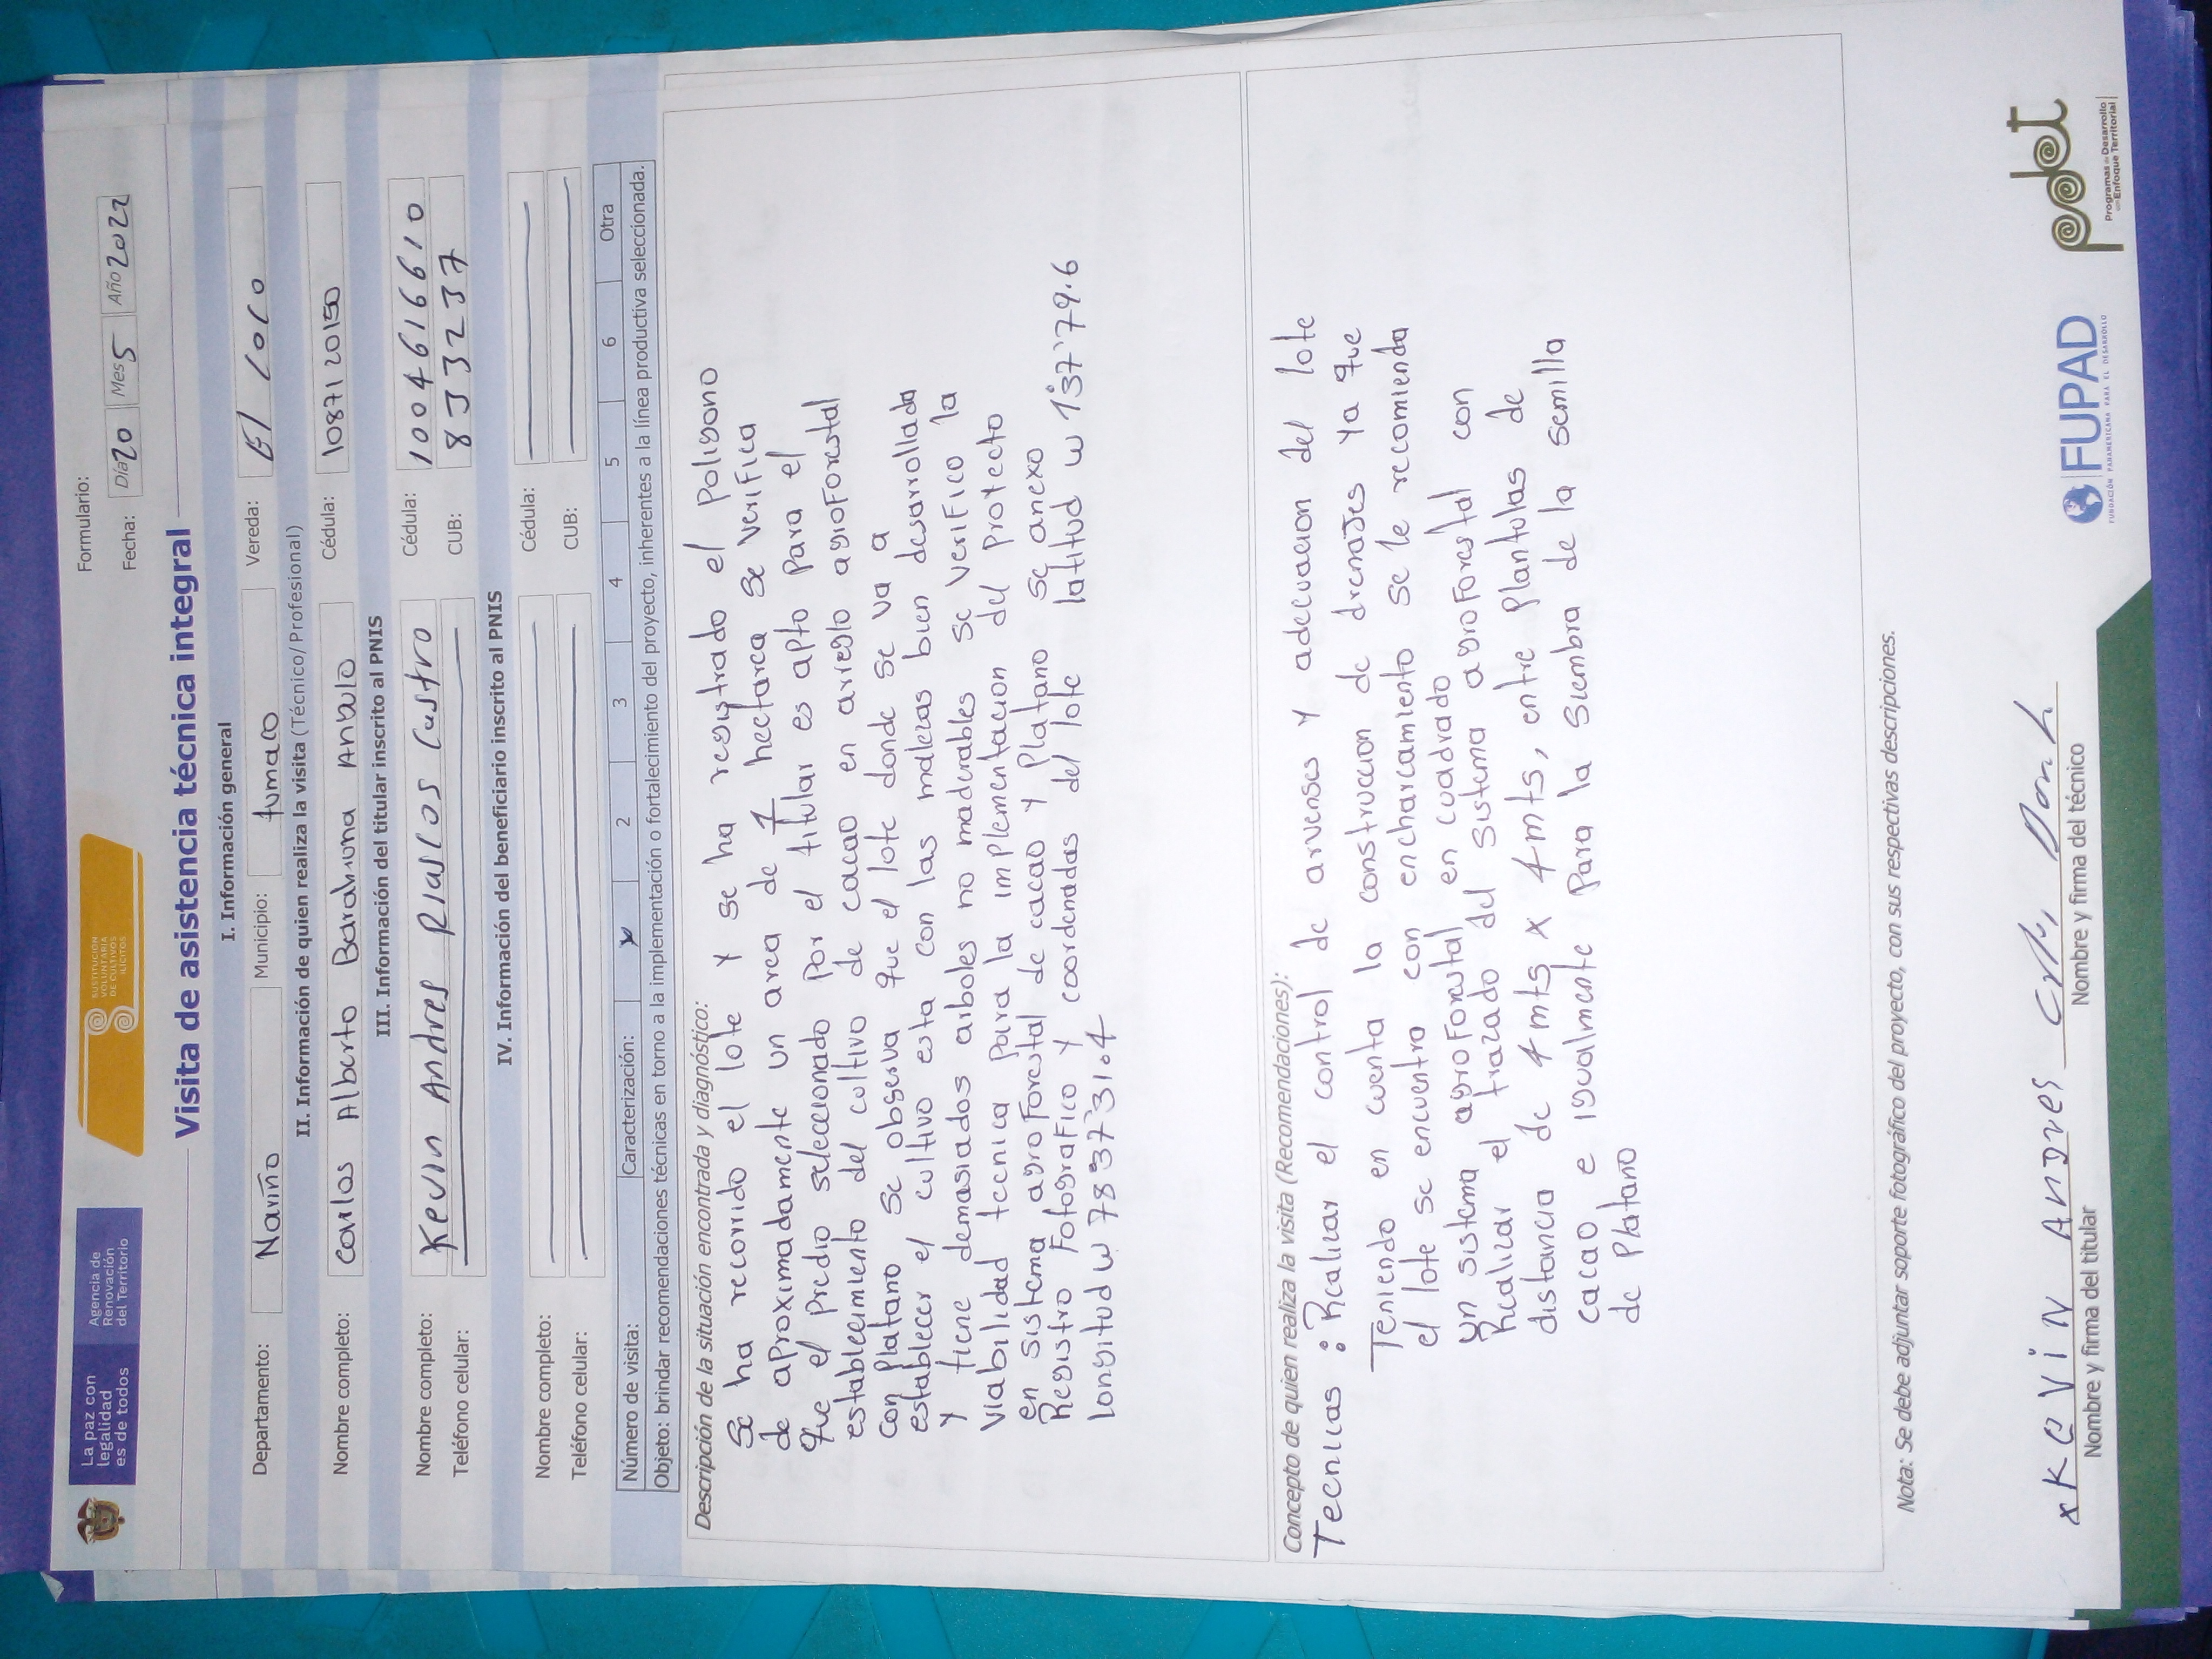 La paz con
legalidad
es de todos
Agencia de
Renovación
del Territorio
SUSTITUCIÓN
VOLUNTARIA
DE CULTIVOS
ILÍCITOS
Formulario:
Fecha: Día 20 Mes 5 Año 2022
Visita de asistencia técnica integral
I. Información general
Departamento: Nariño Municipio: tumaco Vereda: El Coco
II. Información de quien realiza la visita (Técnico/Profesional)
Nombre completo: Carlos Alberto Barahona Angulo Cédula: 1087120150
III. Información del titular inscrito al PNIS
Nombre completo: Kevin Andres Riascos Castro Cédula: 1004616610
Teléfono celular: CUB: 8333237
IV. Información del beneficiario inscrito al PNIS
Nombre completo: Cédula:
Teléfono celular: CUB:
Número de visita: Caracterización: x 2 3 4 5 6 Otra
Objeto: brindar recomendaciones técnicas en torno a la implementación o fortalecimiento del proyecto, inherentes a la línea productiva seleccionada.
Descripción de la situación encontrada y diagnóstico:
Se ha recorrido el lote y se ha registrado el Poligono
de aproximadamente un area de 1 hectarea se verifica
que el predio seleccionado por el titular es apto para el
establecimiento del cultivo de cacao en arreglo agroforestal
con Platano se observa que el lote donde se va a
establecer el cultivo esta con las malezas bien desarrollada
y tiene demasiados arboles no maderables se verifico la
viabilidad tecnica para la implementacion del Proyecto
en sistema agroforestal de cacao y Platano se anexo
Registro Fotografico y coordenadas del lote latitud w 1°37'79.6
longitud w 78°37'31.4
Concepto de quien realiza la visita (Recomendaciones):
Tecnicas : Realizar el control de arvenses y adecuacion del lote
Teniendo en cuenta la construccion de drenajes ya que
el lote se encuentra con encharcamiento se le recomienda
un sistema agroforestal en cuadrado
Realizar el trazado del sistema agroforestal con
distancia de 4 mts x 4 mts, entre Plantulas de
cacao e igualmente Para la siembra de la semilla
de Platano
Nota: Se debe adjuntar soporte fotográfico del proyecto, con sus respectivas descripciones.
x Kevin Andres
Nombre y firma del titular
Nombre y firma del técnico
FUPAD
FUNDACIÓN PANAMERICANA PARA EL DESARROLLO
pdet
Programas de Desarrollo
con Enfoque Territorial